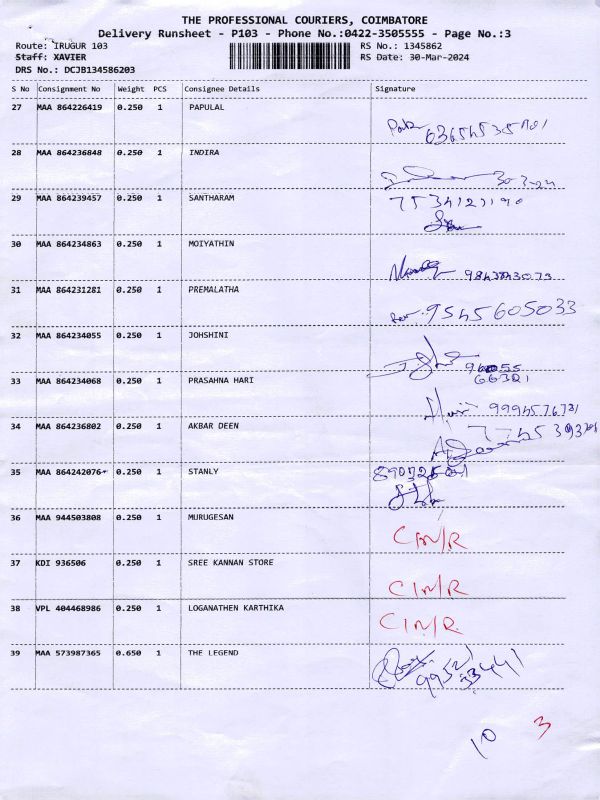 THE PROFESSIONAL COURIERS, COIMBATORE
Delivery Runsheet - P103 - Phone No.:0422-3505555 - Page No.:3
Route: IRUGUR 103 RS No.: 1345862
Staff: XAVIER RS Date: 30-Mar-2024
DRS No.: DCJB134586203
S No Consignment No Weight PCS Consignee Details Signature
27 MAA 864226419 0.250 1 PAPULAL
28 MAA 864236848 0.250 1 INDIRA
30-3-24
29 MAA 864239457 0.250 1 SANTHARAM
30 MAA 864234863 0.250 1 MOIYATHIN
31 MAA 864231281 0.250 1 PREMALATHA
9545605033
32 MAA 864234055 0.250 1 JOHSHINI
33 MAA 864234068 0.250 1 PRASAHNA HARI
34 MAA 864236802 0.250 1 AKBAR DEEN
35 MAA 864242076 0.250 1 STANLY
36 MAA 944503808 0.250 1 MURUGESAN
CN/R
37 KDI 936506 0.250 1 SREE KANNAN STORE
CN/R
38 VPL 404468986 0.250 1 LOGANATHEN KARTHIKA
CN/R
39 MAA 573987365 0.650 1 THE LEGEND
10 3